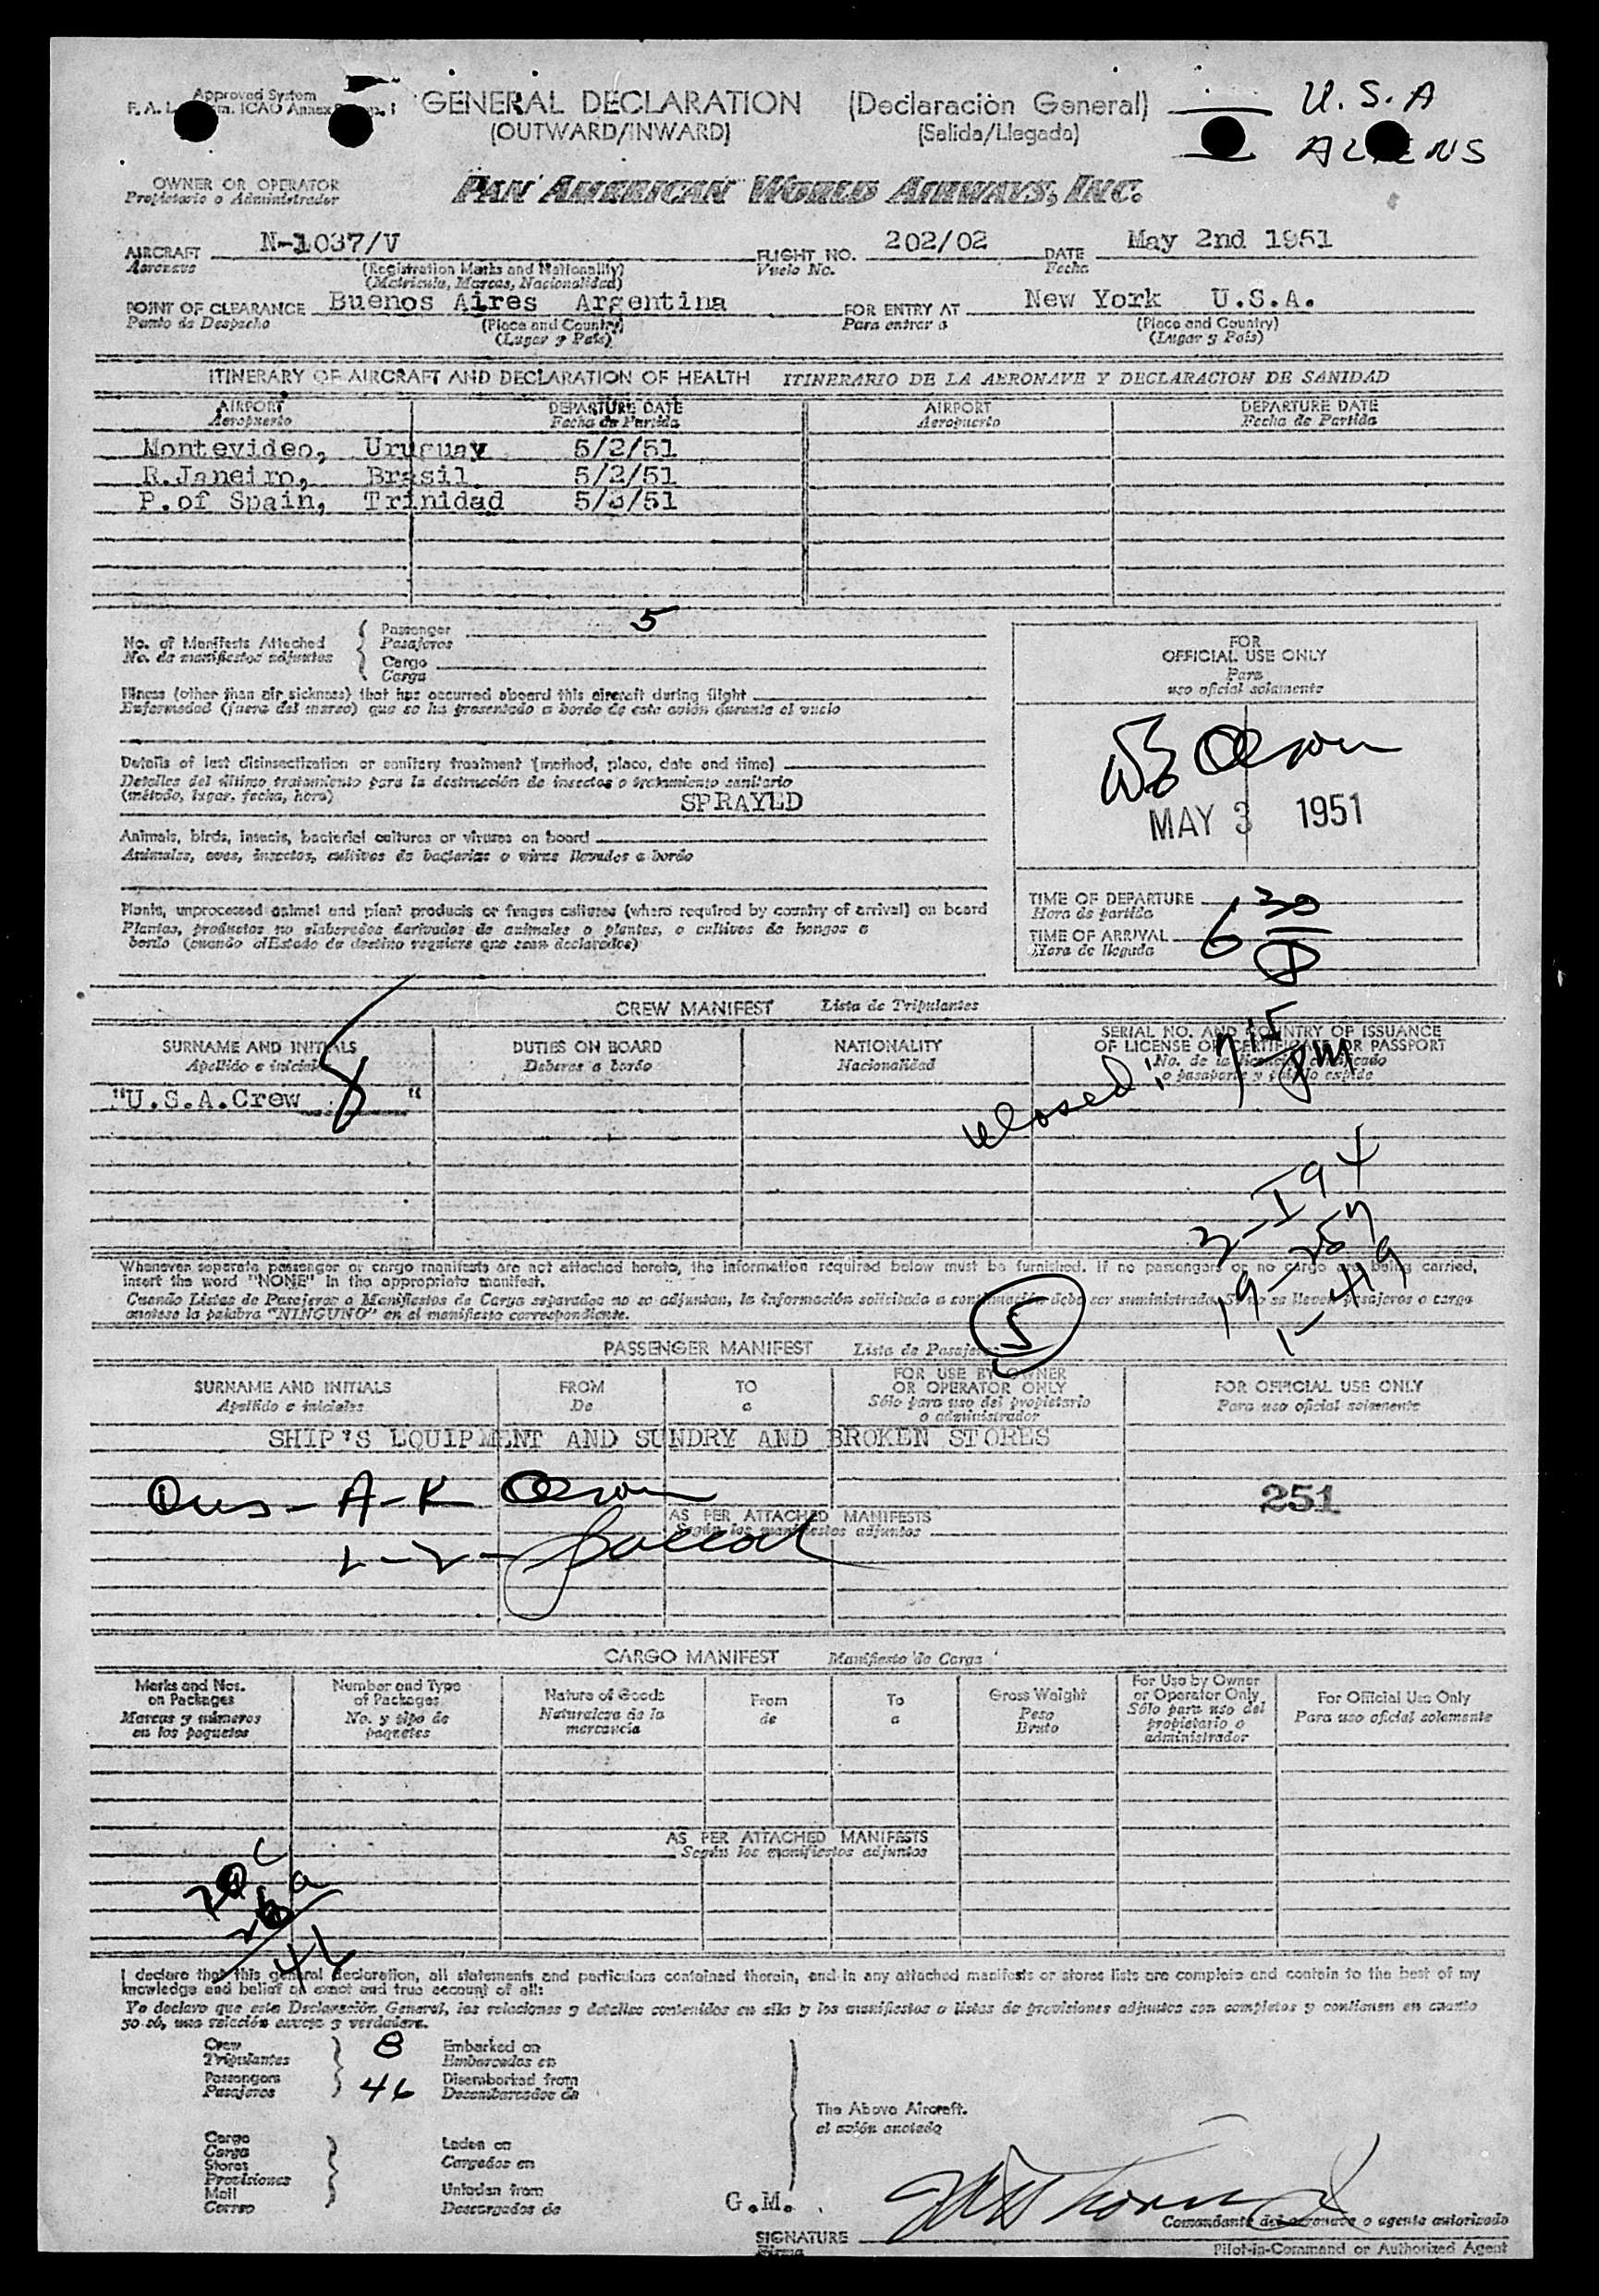 Approved System
GENERAL DECLARATION (Declaración General)
(OUTWARD/INWARD) (Salida/Llegada)
U.S.A
ALIENS
OWNER OR OPERATOR
Propietario o Administrador
PAN AMERICAN WORLD AIRWAYS, INC.
AIRCRAFT N-1037/V FLIGHT NO. 202/02 DATE May 2nd 1951
Aeronave (Registration Marks and Nationality) Vuelo No. Fecha
(Matricula, Marcas, Nacionalidad)
POINT OF CLEARANCE Buenos Aires Argentina FOR ENTRY AT New York U.S.A.
Punto de Despacho (Place and Country) Para entrar a (Place and Country)
(Lugar y País) (Lugar y País)
ITINERARY OF AIRCRAFT AND DECLARATION OF HEALTH ITINERARIO DE LA AERONAVE Y DECLARACION DE SANIDAD
AIRPORT DEPARTURE DATE AIRPORT DEPARTURE DATE
Aeropuerto Fecha de Partida Aeropuerto Fecha de Partida
Montevideo, Uruguay 5/2/51
R.Janeiro, Brasil 5/2/51
P.of Spain, Trinidad 5/3/51
No. of Manifests Attached Passenger 5
No. de manifiestos adjuntos Pasajeros
Cargo
Carga
Illness (other than air sickness) that has occurred aboard this aircraft during flight
Enfermedad (fuera del mareo) que se ha presentado a bordo de este avión durante el vuelo
Details of last disinsectization or sanitary treatment (method, place, date and time)
Detalles del último tratamiento para la destrucción de insectos o tratamiento sanitario
(método, lugar, fecha, hora) SPRAYED
Animals, birds, insects, bacterial cultures or viruses on board
Animales, aves, insectos, cultivos de bacterias o virus llevados a bordo
Plants, unprocessed animal and plant products or fungus cultures (where required by country of arrival) on board
Plantas, productos no elaborados derivados de animales o plantas, o cultivos de hongos a
bordo (cuando el Estado de destino requiera que sean declarados)
FOR
OFFICIAL USE ONLY
Para
uso oficial solamente
MAY 3 1951
TIME OF DEPARTURE
Hora de partida
TIME OF ARRIVAL 6 30
Hora de llegada
CREW MANIFEST Lista de Tripulantes
SURNAME AND INITIALS DUTIES ON BOARD NATIONALITY SERIAL NO. AND COUNTRY OF ISSUANCE
OF LICENSE OR CERTIFICATE OR PASSPORT
Apellido e iniciales Deberes a bordo Nacionalidad
"U.S.A.Crew 8 "
closed 7 15 pm
Whenever separate passenger or cargo manifests are not attached hereto, the information required below must be furnished. If no passengers or no cargo are being carried,
insert the word "NONE" in the appropriate manifest.
Cuando Listas de Pasajeros o Manifiestos de Carga separados no se adjuntan, la información solicitada a continuación debe ser suministrada. Si no se llevan pasajeros o carga
anotese la palabra "NINGUNO" en el manifiesto correspondiente.
5
PASSENGER MANIFEST Lista de Pasajeros
SURNAME AND INITIALS FROM TO FOR USE BY OWNER OR OPERATOR ONLY FOR OFFICIAL USE ONLY
Apellido e iniciales De a Sólo para uso del propietario o administrador Para uso oficial solamente
SHIP'S EQUIPMENT AND SUNDRY AND BROKEN STORES
251
AS PER ATTACHED MANIFESTS
Según los manifiestos adjuntos
CARGO MANIFEST Manifiesto de Carga
Marks and Nos. on Packages Number and Type of Packages Nature of Goods From To Gross Weight For Use by Owner or Operator Only For Official Use Only
Marcas y números en los paquetes No. y tipo de paquetes Naturaleza de la mercancía de a Peso Bruto Sólo para uso del propietario o administrador Para uso oficial solamente
AS PER ATTACHED MANIFESTS
Según los manifiestos adjuntos
46
I declare that this general declaration, all statements and particulars contained therein, and in any attached manifests or stores lists are complete and contain to the best of my
knowledge and belief an exact and true account of all:
Yo declaro que esta Declaración General, las relaciones y detalles contenidos en ella y los manifiestos o listas de provisiones adjuntos son completos y contienen en cuanto
yo sé, una relación exacta y verdadera.
Crew 8 Embarked on
Tripulantes Embarcados en
Passengers 46 Disembarked from
Pasajeros Desembarcados de
The Above Aircraft.
el avión anotado
Cargo Laden on
Carga Cargados en
Stores
Provisiones
Mail Unladen from
Correo Descargados de
G.M.
SIGNATURE Comandante del aeronave o agente autorizado
Firma Pilot-in-Command or Authorized Agent